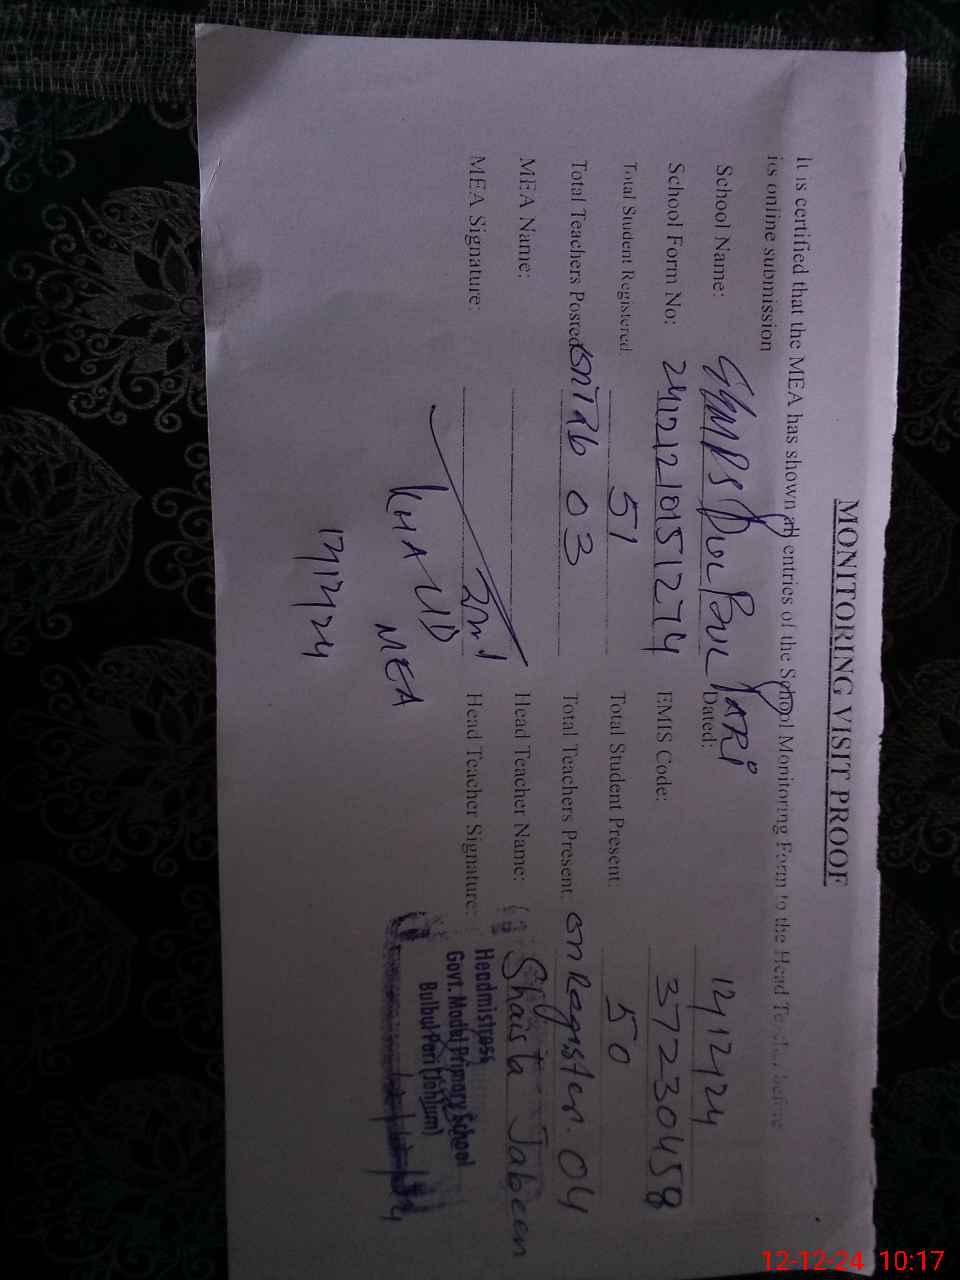 MONITORING VISIT PROOF
It is certified that the MEA has shown all entries of the School Monitoring Form to the Head Teacher before
its online submission
School Name: GMPS Bul Bul PARi Dated: 12/12/24
School Form No: 24121210151274 EMIS Code: 37230458
Total Student Registered 51 Total Student Present: 50
Total Teachers Posted on Tab 03 Total Teachers Present: on Register. 04
MEA Name: Head Teacher Name: Shaista Jabeen
MEA Signature: Head Teacher Signature:
Headmistress
Govt. Model Primary School
Bulbul Pari (Jehlum)
KHALID
MEA
12/12/24
12-12-24 10:17